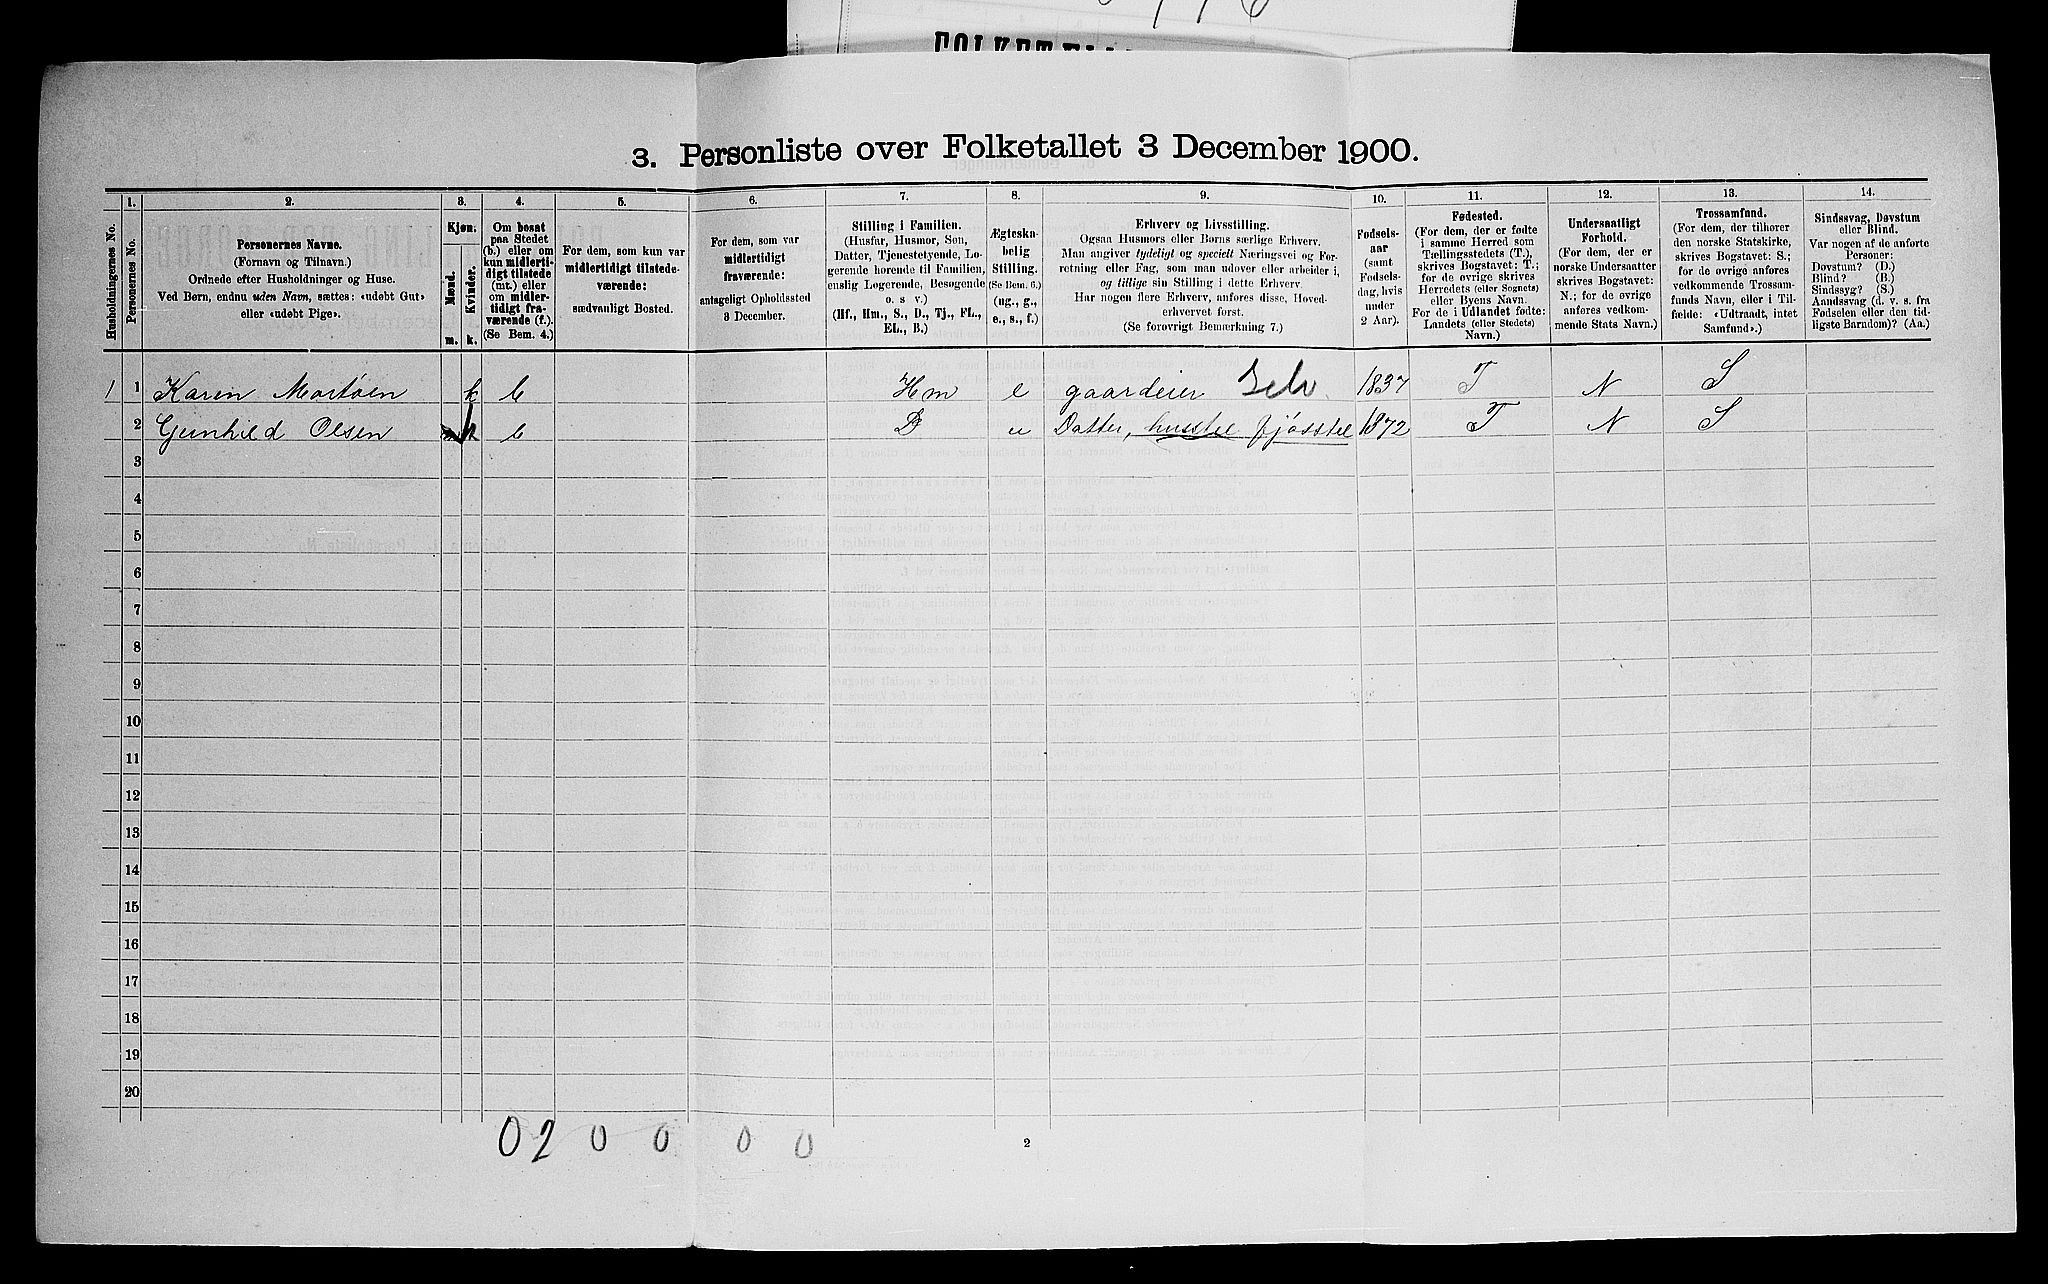 FOLKET
3. Personliste over Folketallet 3 December 1900.
Husholdningernes No.
1.
Personernes No.
2.
Personernes Navne.
(Fornavn og Tilnavn.)
Ordnede efter Husholdninger og Huse.
Ved Børn, endnu uden Navn, sættes: «udøbt Gut»
eller «udøbt Pige».
3.
Kjøn.
Mænd.
Kvinder.
m. k.
4.
Om bosat
paa Stedet
(b.) eller om
kun midlerti-
digt tilstede
(mt.) eller
om midler-
tidigt fra-
værende (f.).
(Se Bem. 4.)
5.
For dem, som kun var
midlertidigt tilstede-
værende:
sædvanligt Bosted.
6.
For dem, som var
midlertidigt
fraværende:
antageligt Opholdssted
3 December.
7.
Stilling i Familien.
(Husfar, Husmor, Søn,
Datter, Tjenestetyende, Lo-
gerende hørende til Familien,
enslig Logerende, Besøgende
o. s v.)
(Hf., Hm., S., D., Tj., FL.,
EL., B.)
8.
Ægteska-
belig
Stilling.
(Se Bem. 6.)
(ug., g.,
e., s., f.)
9.
Erhverv og Livsstilling.
Ogsaa Husmors eller Børns særlige Erhverv.
Man angiver tydeligt og specielt Næringsvei og For-
retning eller Fag, som man udøver eller arbeider i,
og tillige sin Stilling i dette Erhverv.
Har nogen flere Erhverv, anføres disse, Hoved-
erhvervet først.
(Se forøvrigt Bemærkning 7.)
10.
Fødsels-
aar
(samt
Fødsels-
dag, hvis
under
2 Aar).
11.
Fødested.
(For dem, der er fødte
i samme Herred som
Tællingsstedets (T.),
skrives Bogstavet: T.;
for de øvrige skrives
Herredets (eller Sognets)
eller Byens Navn.
For de i Udlandet fødte:
Landets (eller Stedets)
Navn.)
12.
Undersaatligt
Forhold.
(For dem, der er
norske Undersaatter
skrives Bogstavet:
N.; for de øvrige
anføres vedkom-
mende Stats Navn.)
13.
Trossamfund.
(For dem, der tilhører
den norske Statskirke,
skrives Bogstavet: S.;
for de øvrige anføres
vedkommende Trossam-
funds Navn, eller i Til-
fælde: «Udtraadt, intet
Samfund».)
14.
Sindssvag, Døvstum
eller Blind.
Var nogen af de anførte
Personer:
Døvstum? (D.)
Blind? (B.)
Sindssyg? (S.)
Aandssvag (d. v. s. fra
Fødselen eller den tid-
ligste Barndom)? (Aa.)
1 1 Karen Mortsen k b Hm e gaardeier Selv 1837 T N S
2 Gunhild Olsen k b D u Datter, husstel fjøsstel 1872 T N S
3
4
5
6
7
8
9
10
11
12
13
14
15
16
17
18
19
20
02 0 0 0 0
2